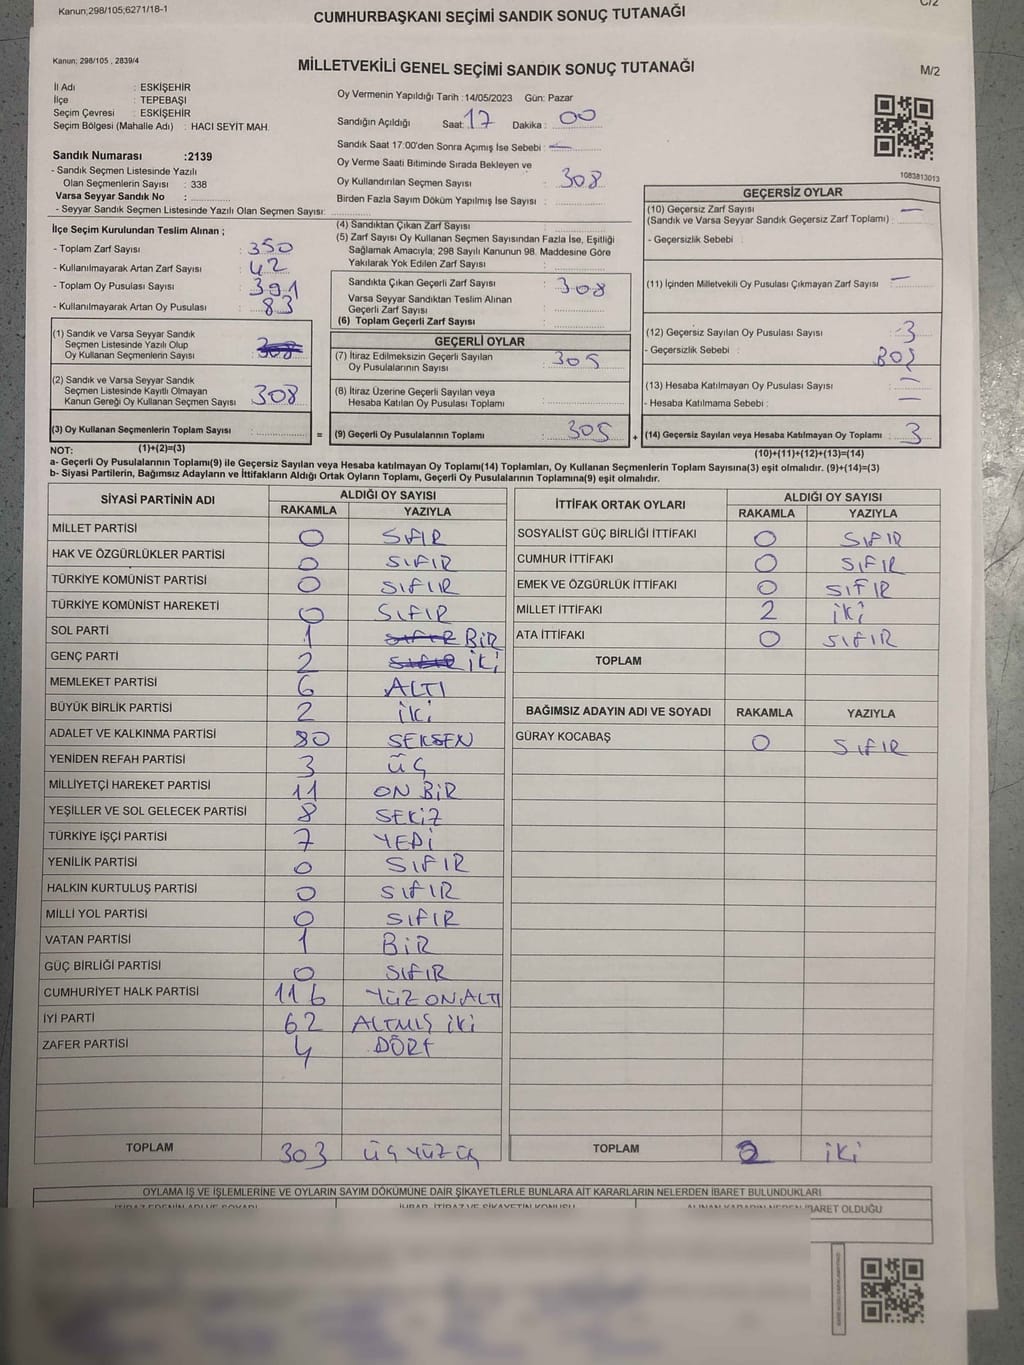 Kanun;298/105;6271/18-1
C/2
CUMHURBAŞKANI SEÇİMİ SANDIK SONUÇ TUTANAĞI
Kanun; 298/105 , 2839/4
MİLLETVEKİLİ GENEL SEÇİMİ SANDIK SONUÇ TUTANAĞI
M/2
İl Adı : ESKİŞEHİR
İlçe : TEPEBAŞI
Seçim Çevresi : ESKİŞEHİR
Seçim Bölgesi (Mahalle Adı) : HACI SEYİT MAH.
Sandık Numarası :2139
- Sandık Seçmen Listesinde Yazılı
Olan Seçmenlerin Sayısı : 338
Varsa Seyyar Sandık No :
- Seyyar Sandık Seçmen Listesinde Yazılı Olan Seçmen Sayısı:
Oy Vermenin Yapıldığı Tarih :14/05/2023 Gün: Pazar
Sandığın Açıldığı Saat: 17 Dakika : 00
Sandık Saat 17:00'den Sonra Açımış İse Sebebi : —
Oy Verme Saati Bitiminde Sırada Bekleyen ve
Oy Kullandırılan Seçmen Sayısı : 308
Birden Fazla Sayım Döküm Yapılmış İse Sayısı :
1083813013
İlçe Seçim Kurulundan Teslim Alınan ;
- Toplam Zarf Sayısı : 350
- Kullanılmayarak Artan Zarf Sayısı : 42
- Toplam Oy Pusulası Sayısı : 391
- Kullanılmayarak Artan Oy Pusulası : 83
(1) Sandık ve Varsa Seyyar Sandık
Seçmen Listesinde Yazılı Olup
Oy Kullanan Seçmenlerin Sayısı : 308
(2) Sandık ve Varsa Seyyar Sandık
Seçmen Listesinde Kayıtlı Olmayan
Kanun Gereği Oy Kullanan Seçmen Sayısı : 308
(3) Oy Kullanan Seçmenlerin Toplam Sayısı :
(4) Sandıktan Çıkan Zarf Sayısı :
(5) Zarf Sayısı Oy Kullanan Seçmen Sayısından Fazla İse, Eşitliği
Sağlamak Amacıyla; 298 Sayılı Kanunun 98. Maddesine Göre
Yakılarak Yok Edilen Zarf Sayısı :
Sandıkta Çıkan Geçerli Zarf Sayısı : 308
Varsa Seyyar Sandıktan Teslim Alınan
Geçerli Zarf Sayısı :
(6) Toplam Geçerli Zarf Sayısı :
GEÇERLİ OYLAR
(7) İtiraz Edilmeksizin Geçerli Sayılan
Oy Pusulalarının Sayısı : 305
(8) İtiraz Üzerine Geçerli Sayılan veya
Hesaba Katılan Oy Pusulası Toplamı :
= (9) Geçerli Oy Pusulalarının Toplamı : 305
GEÇERSİZ OYLAR
(10) Geçersiz Zarf Sayısı : —
(Sandık ve Varsa Seyyar Sandık Geçersiz Zarf Toplamı) :
- Geçersizlik Sebebi :
(11) İçinden Milletvekili Oy Pusulası Çıkmayan Zarf Sayısı : —
(12) Geçersiz Sayılan Oy Pusulası Sayısı : 3
- Geçersizlik Sebebi :
(13) Hesaba Katılmayan Oy Pusulası Sayısı : —
- Hesaba Katılmama Sebebi : —
+ (14) Geçersiz Sayılan veya Hesaba Katılmayan Oy Toplamı : 3
NOT: (1)+(2)=(3)
(10)+(11)+(12)+(13)=(14)
a- Geçerli Oy Pusulalarının Toplamı(9) ile Geçersiz Sayılan veya Hesaba katılmayan Oy Toplamı(14) Toplamları, Oy Kullanan Seçmenlerin Toplam Sayısına(3) eşit olmalıdır. (9)+(14)=(3)
b- Siyasi Partilerin, Bağımsız Adayların ve İttifakların Aldığı Ortak Oyların Toplamı, Geçerli Oy Pusulalarının Toplamına(9) eşit olmalıdır.
SİYASİ PARTİNİN ADI ALDIĞI OY SAYISI
RAKAMLA YAZIYLA
MİLLET PARTİSİ 0 SIFIR
HAK VE ÖZGÜRLÜKLER PARTİSİ 0 SIFIR
TÜRKİYE KOMÜNİST PARTİSİ 0 SIFIR
TÜRKİYE KOMÜNİST HAREKETİ 0 SIFIR
SOL PARTİ 1 SIFIR BİR
GENÇ PARTİ 2 SIFIR İKİ
MEMLEKET PARTİSİ 6 ALTI
BÜYÜK BİRLİK PARTİSİ 2 İKİ
ADALET VE KALKINMA PARTİSİ 80 SEKSEN
YENİDEN REFAH PARTİSİ 3 ÜÇ
MİLLİYETÇİ HAREKET PARTİSİ 11 ON BİR
YEŞİLLER VE SOL GELECEK PARTİSİ 8 SEKİZ
TÜRKİYE İŞÇİ PARTİSİ 7 YEDİ
YENİLİK PARTİSİ 0 SIFIR
HALKIN KURTULUŞ PARTİSİ 0 SIFIR
MİLLİ YOL PARTİSİ 0 SIFIR
VATAN PARTİSİ 1 BİR
GÜÇ BİRLİĞİ PARTİSİ 0 SIFIR
CUMHURİYET HALK PARTİSİ 116 YÜZ ONALTI
İYİ PARTİ 62 ALTMIŞ İKİ
ZAFER PARTİSİ 4 DÖRT
TOPLAM 303 ÜÇ YÜZ ÜÇ
İTTİFAK ORTAK OYLARI ALDIĞI OY SAYISI
RAKAMLA YAZIYLA
SOSYALİST GÜÇ BİRLİĞİ İTTİFAKI 0 SIFIR
CUMHUR İTTİFAKI 0 SIFIR
EMEK VE ÖZGÜRLÜK İTTİFAKI 0 SIFIR
MİLLET İTTİFAKI 2 İKİ
ATA İTTİFAKI 0 SIFIR
TOPLAM
BAĞIMSIZ ADAYIN ADI VE SOYADI RAKAMLA YAZIYLA
GÜRAY KOCABAŞ 0 SIFIR
TOPLAM 2 İKİ
OYLAMA İŞ VE İŞLEMLERİNE VE OYLARIN SAYIM DÖKÜMÜNE DAİR ŞİKAYETLERLE BUNLARA AİT KARARLARIN NELERDEN İBARET BULUNDUKLARI